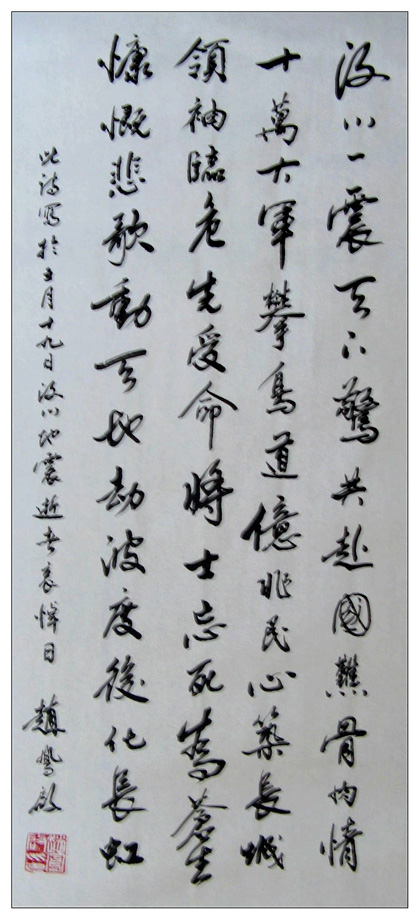 汶川一震天下驚共赴國難骨肉情
十萬大軍攀鳥道億兆民心築長城
領袖臨危先受命將士忘死為蒼生
慷慨悲歌動天地劫波度後化長虹
此詩寫於五月十九日汶川地震逝者哀悼日 趙鳳啟